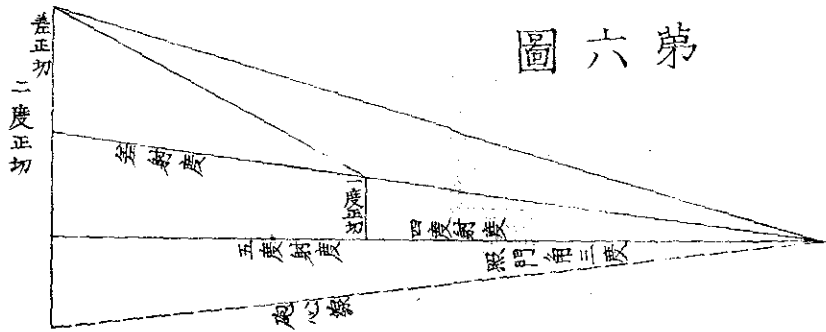 第六圖
差正切
二度正切
差射度
一度正切
四度射度
五度射度
照門角三度
砲心線